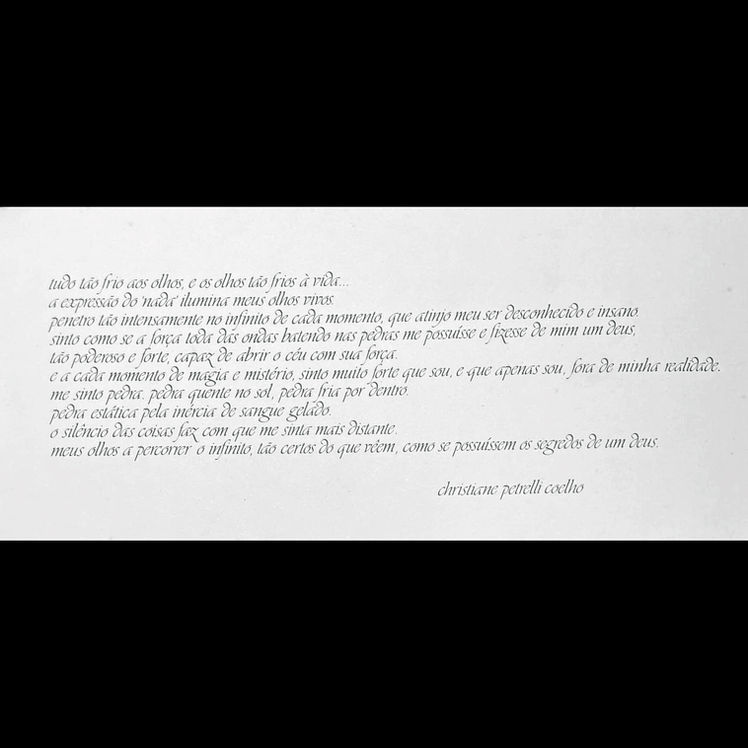 tudo tão frio aos olhos, e os olhos tão frios à vida...
a expressão do 'nada' ilumina meus olhos vivos.
penetro tão intensamente no infinito de cada momento, que atinjo meu ser desconhecido e insano.
sinto como se a força toda das ondas batendo nas pedras me possuísse e fizesse de mim um deus,
tão poderoso e forte, capaz de abrir o céu com sua força.
e a cada momento de magia e mistério, sinto muito forte que sou, e que apenas sou, fora de minha realidade.
me sinto pedra. pedra quente no sol, pedra fria por dentro.
pedra estática pela inércia de sangue gelado.
o silêncio das coisas faz com que me sinta mais distante.
meus olhos a percorrer o infinito, tão certos do que vêem, como se possuíssem os segredos de um deus.
christiane petrelli coelho